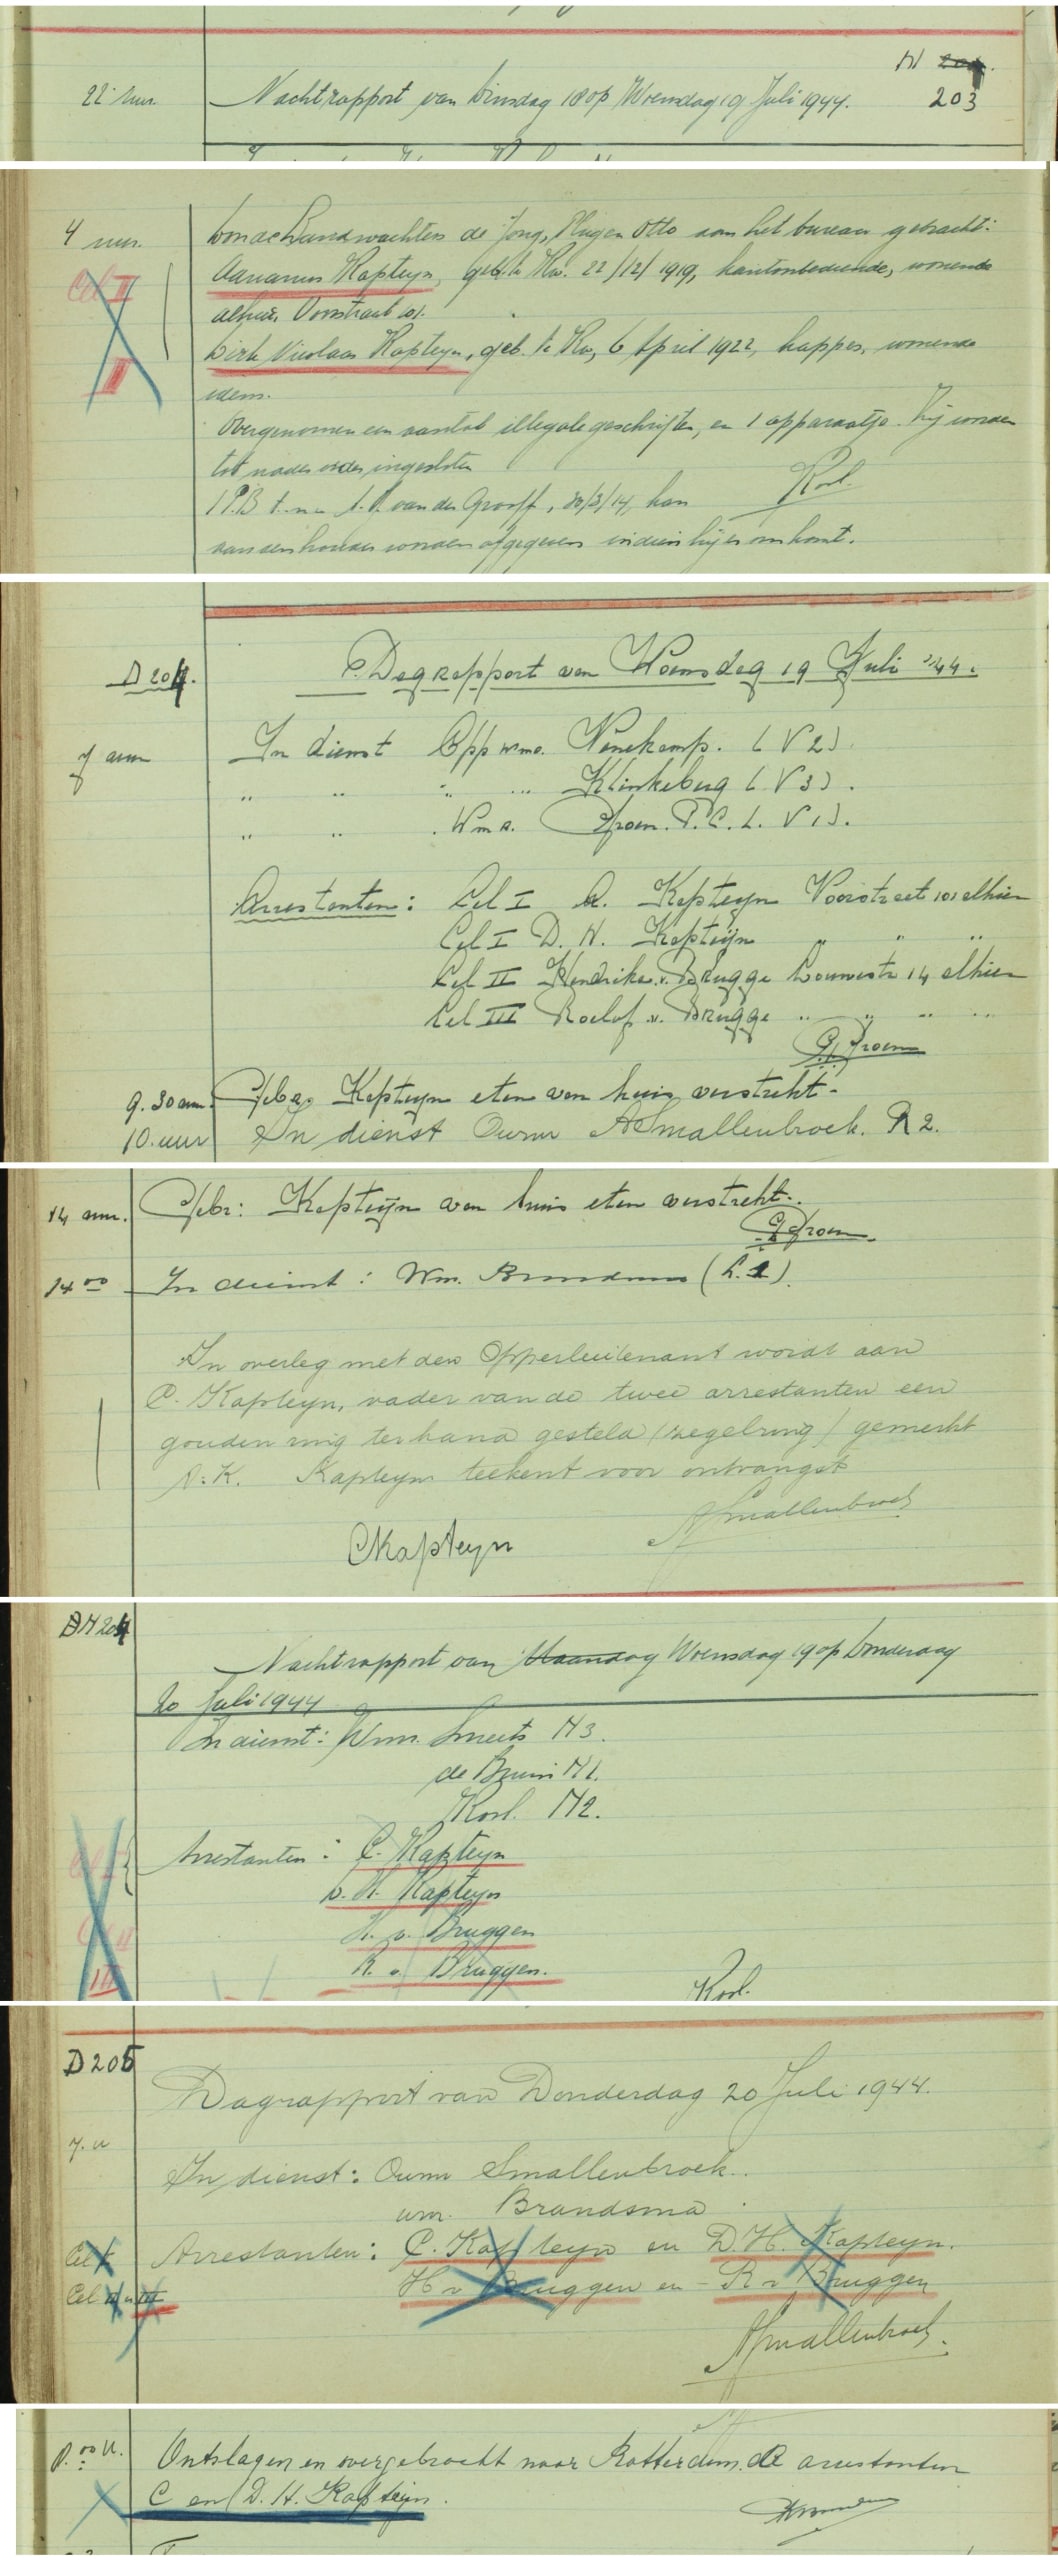 N 204.
22 uur. Nachtrapport van Dinsdag 18 op Woensdag 19 Juli 1944. 203
4 uur. Door de Landwachters de Jong, Plug en Otto aan het bureau gebracht:
Cel II Adrianus Kapteyn, geb. te Kw. 22/12/1919, kantoorbediende, wonende
alhier, Voorstraat 101.
II Dirk Nicolaas Kapteyn, geb. te Kw, 6 April 1922, kapper, wonende
idem.
Overgenomen een aantal illegale geschriften, en 1 apparaatje. Zij worden
tot nader order ingesloten
1 P.B t.n. v. d. Grooff, 30/3/14, kan Korl.
aan den houder worden afgegeven indien hij er om komt.
D 204. Dagrapport van Woensdag 19 Juli '44.
7 uur In dienst Opp wm. Nunekamp. (V2)
" " " " Klinkeberg (V3).
" " . Wm. Groen. P.C.L. V1).
Arrestanten: Cel I A. Kapteyn Voorstraat 101 alhier
Cel I D. N. Kapteijn " " "
Cel II Hendrik v. Brugge Louwestr 14 alhier
Cel III Roelof v. Brugge " " " "
Groen
9.30 uur. Gebr. Kapteyn eten van huis verstrekt.
10. uur In dienst Owm ASmallenbroek. R 2.
14 uur. Gebr: Kapteijn van huis eten verstrekt.
Groen
14 00 In dienst: Wm. Brandsma (L.1).
In overleg met den Opperluitenant wordt aan
C. Kapteyn, vader van de twee arrestanten een
gouden ring ter hand gesteld (zegelring) gemerkt
A.K. Kapteyn teekent voor ontvangst
ASmallenbroek
CKapteyn
DN 204
Nachtrapport van Maandag Woensdag 19 op Donderdag
20 Juli 1944
In dienst: Wm. Smeets N3.
de Bruin N1.
Korl. N2.
Arrestanten: C. Kapteyn
D. N. Kapteyn
H. v. Bruggen
R. v. Bruggen.
III
Korl.
D 205
Dagrapport van Donderdag 20 Juli 1944.
7. u
In dienst: Owm Smallenbroek.
wm. Brandsma
Cel I Arrestanten: C. Kapteyn en D.H. Kapteyn.
Cel II en III H v Bruggen en R v Bruggen
ASmallenbroek.
8.00 u. Ontslagen en overgebracht naar Rotterdam. de arrestanten
C en D. H. Kapteijn.